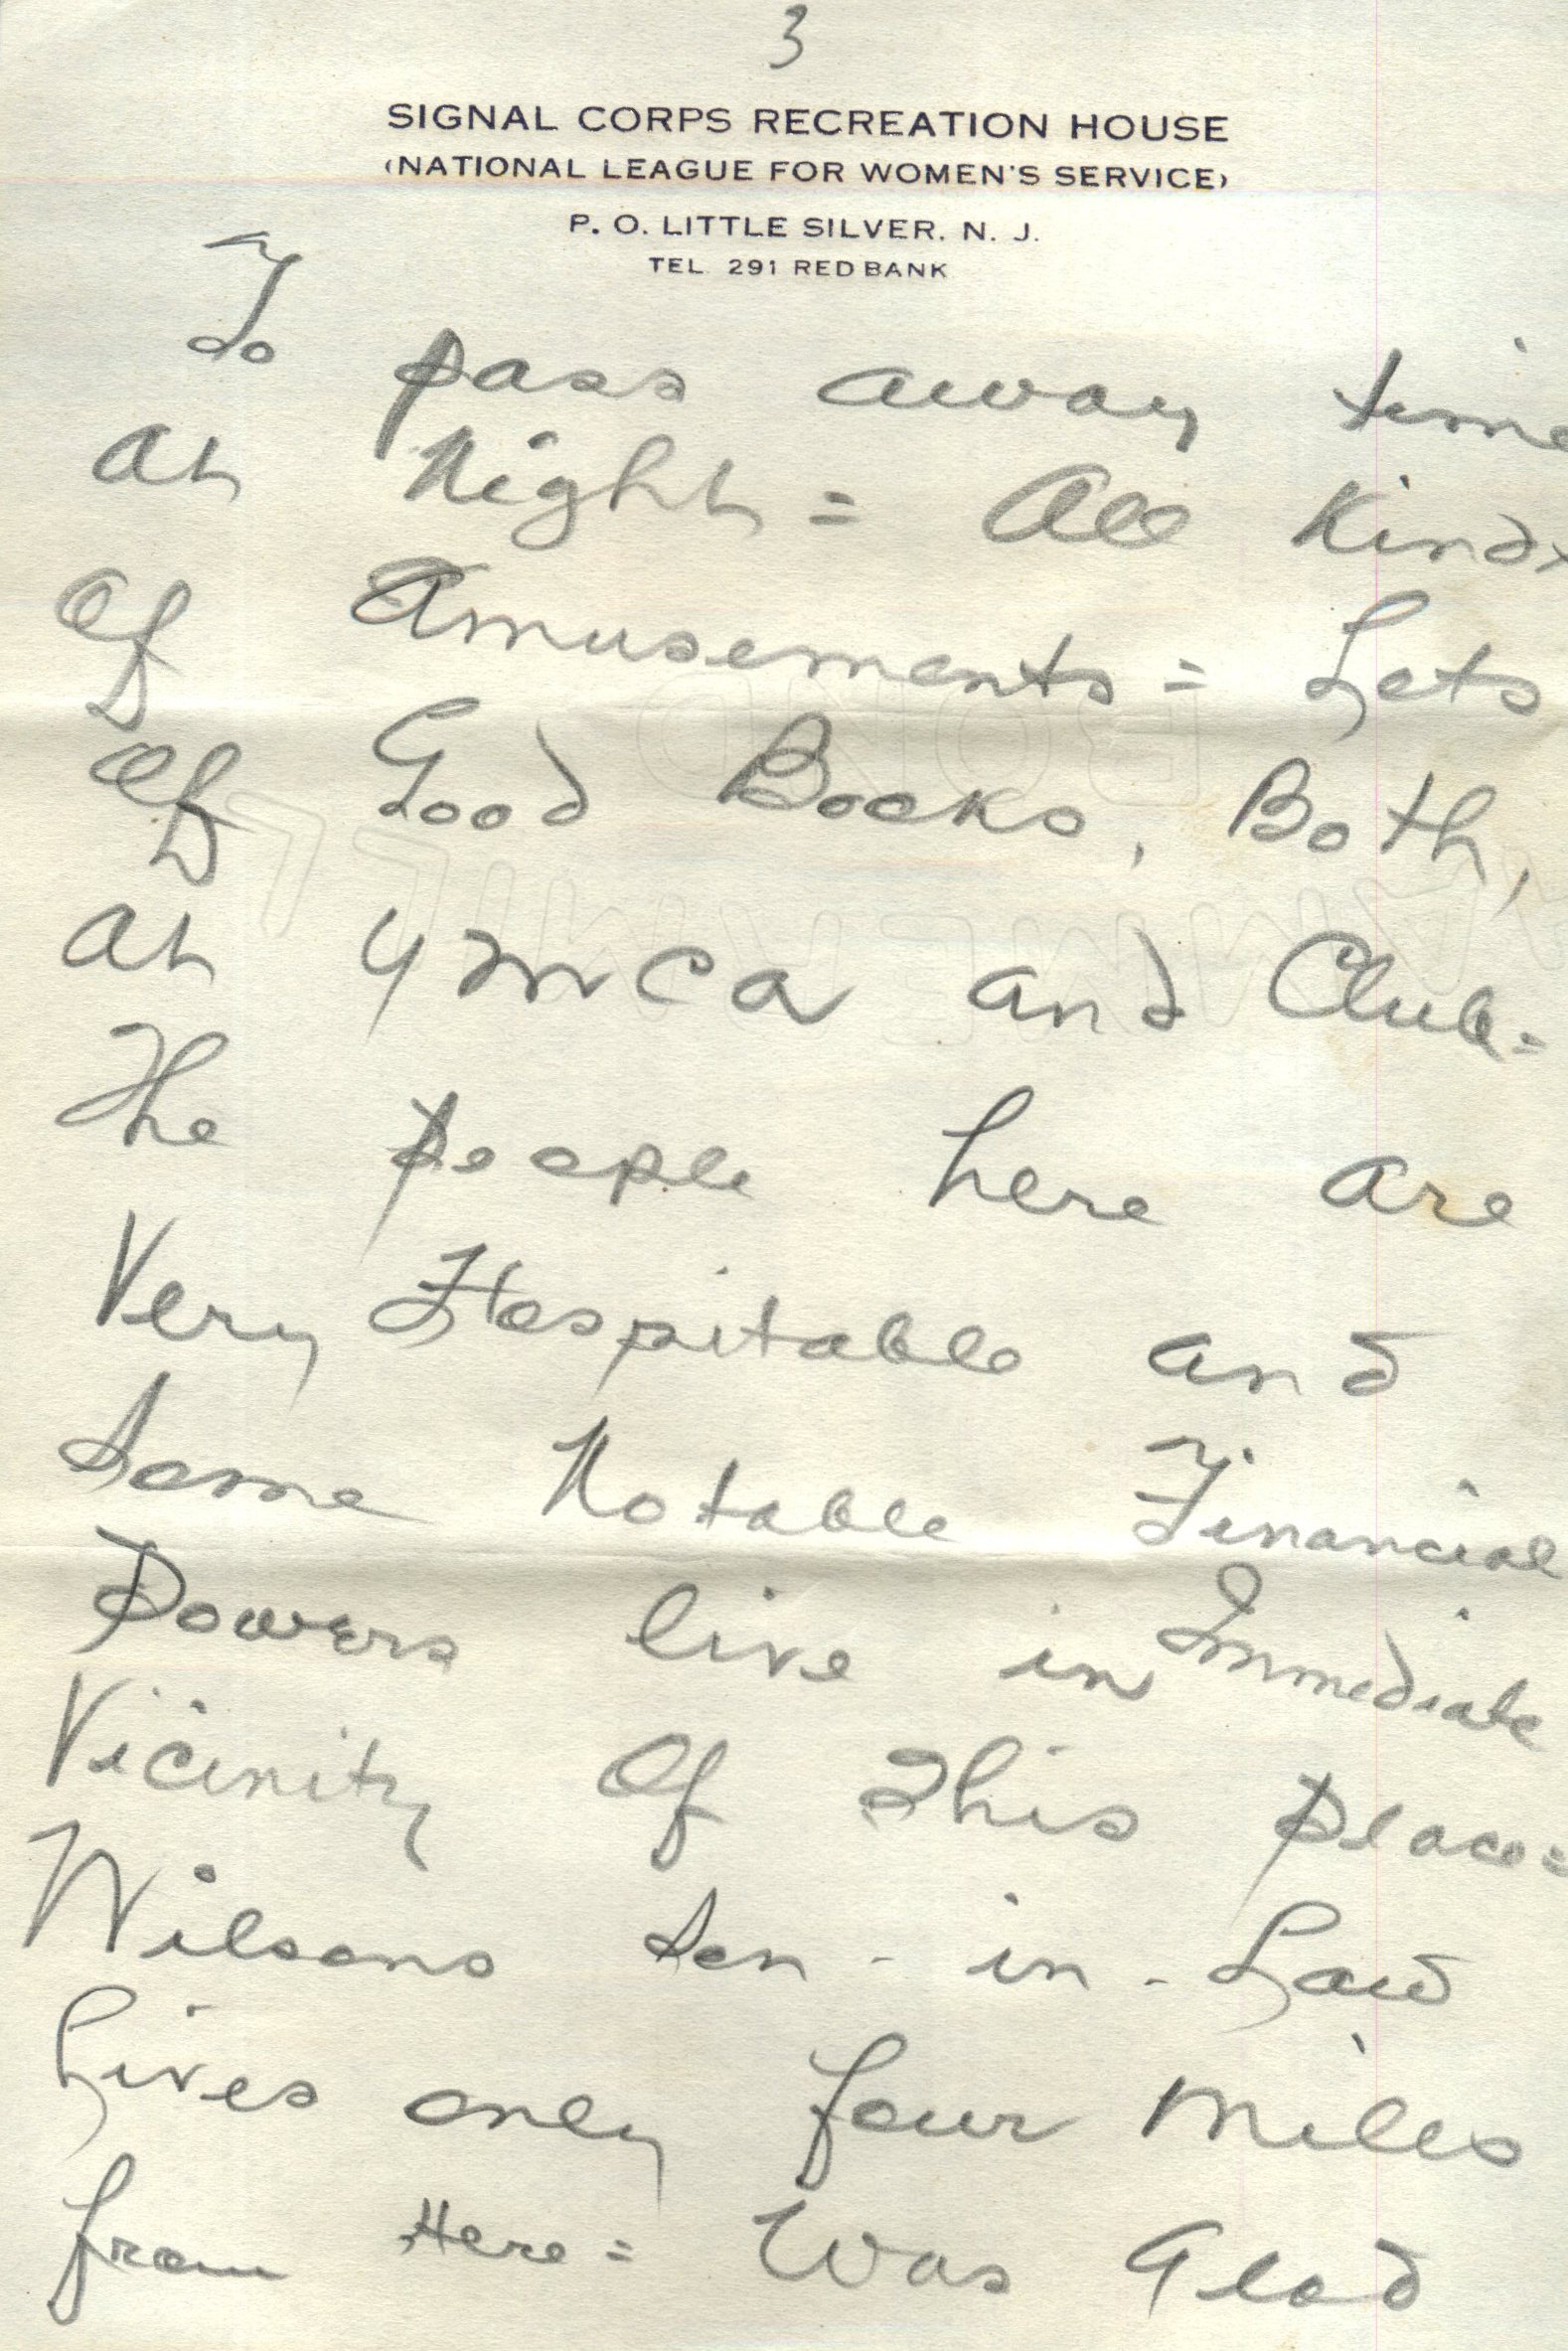 3
SIGNAL CORPS RECREATION HOUSE
(NATIONAL LEAGUE FOR WOMEN'S SERVICE)
P. O. LITTLE SILVER, N. J.
TEL. 291 RED BANK
To pass away time
at Night = All Kinds
of Amusements = Lots
of Good Books, Both,
at YMCA and Club=
The people here are
Very Hospitable and
Some Notable Financial
Powers live in Immediate
Vicinity Of This Place=
Wilsons Son-in-Law
Lives only four miles
from Here= Was Glad
BOND